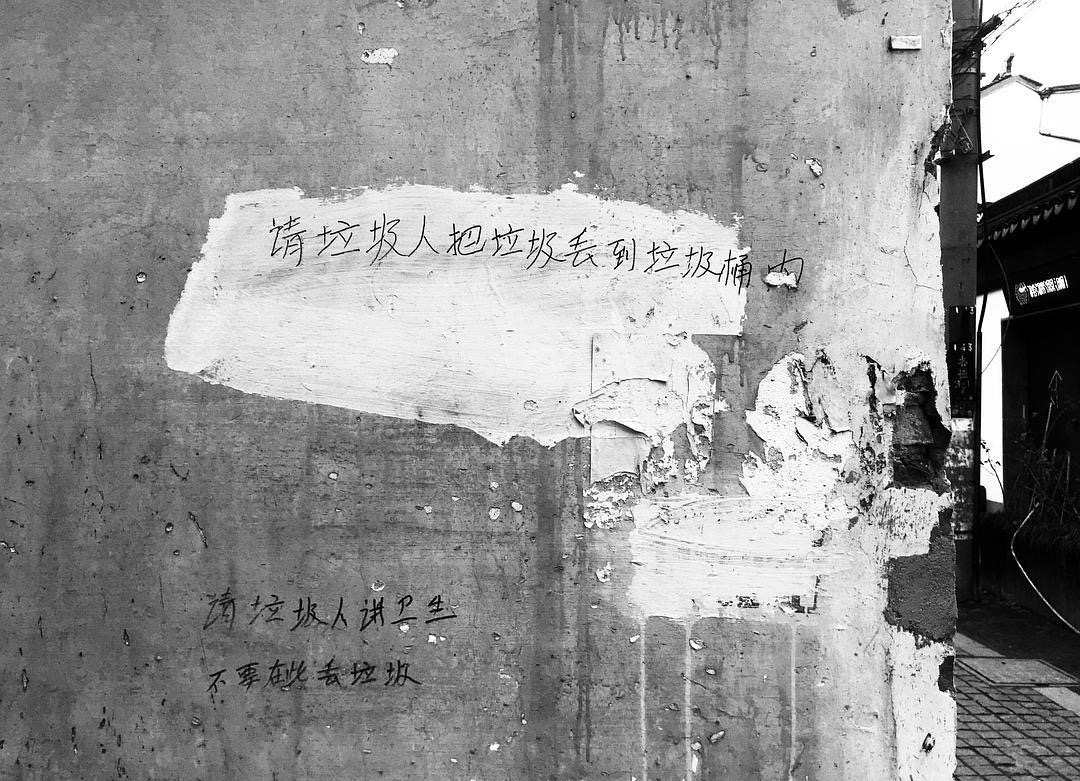 请垃圾人把垃圾丢到垃圾桶内
请垃圾人讲卫生
不要在此丢垃圾